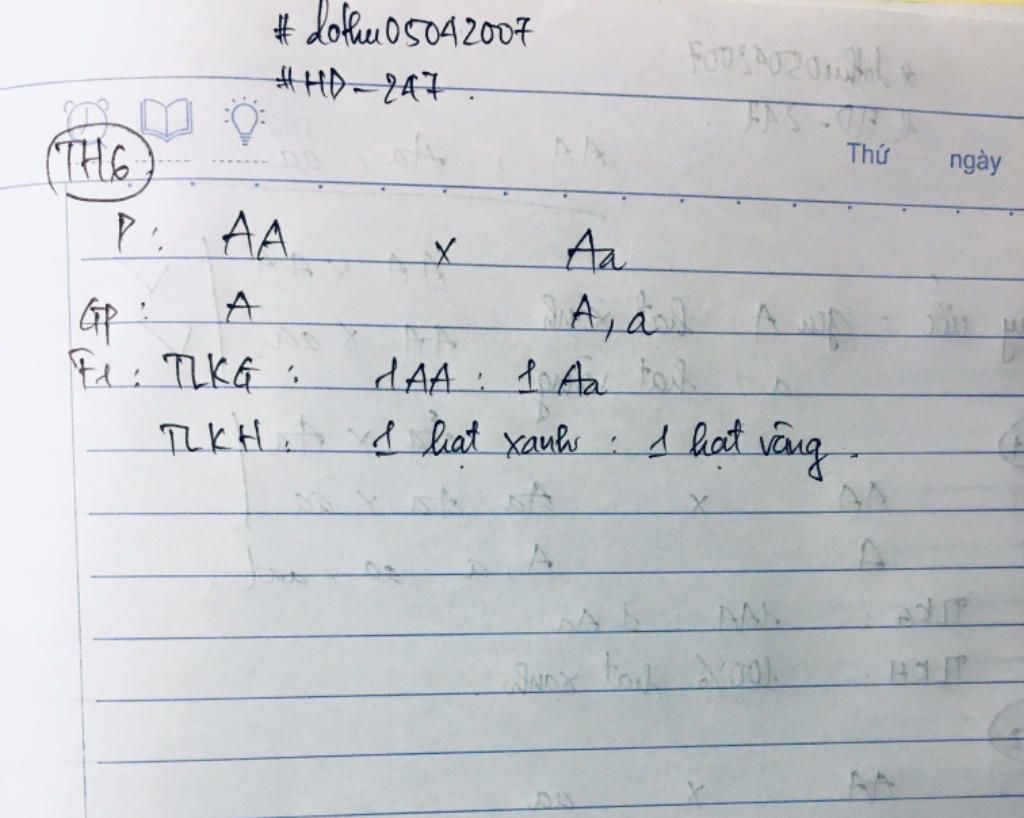 # dothu05042007
#HD-247.
Thứ ngày
TH6
P: AA x Aa
GP: A A, a
F1: TLKG: 1AA : 1 Aa
TLKH: 1 hạt xanh : 1 hạt vàng.